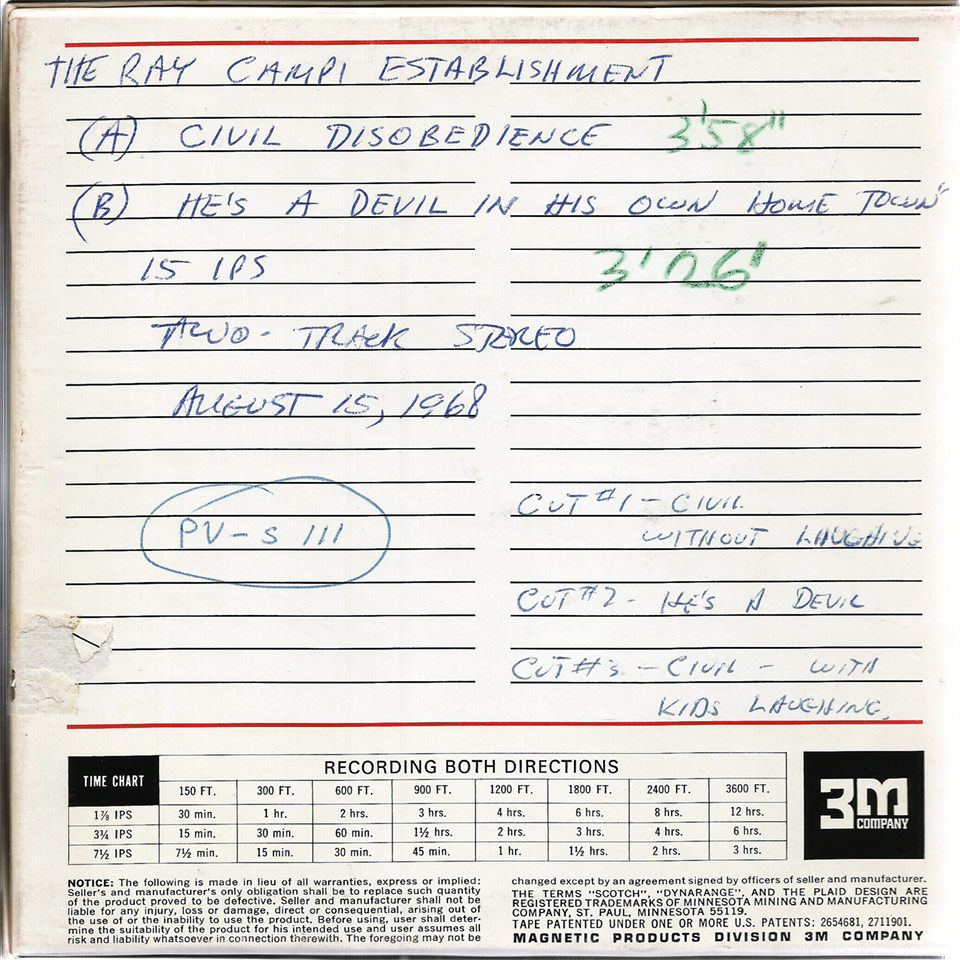 THE RAY CAMPI ESTABLISHMENT
(A) CIVIL DISOBEDIENCE 3'58"
(B) HE'S A DEVIL IN HIS OWN HOME TOWN
15 IPS 3'26'
TWO-TRACK STEREO
AUGUST 15, 1968
PV-S 111
CUT #1 - CIVIL
WITHOUT LAUGHING
CUT #2 - HE'S A DEVIL
CUT #3 - CIVIL - WITH
KIDS LAUGHING.
TIME CHART
RECORDING BOTH DIRECTIONS
150 FT. 300 FT. 600 FT. 900 FT. 1200 FT. 1800 FT. 2400 FT. 3600 FT.
1⅞ IPS 30 min. 1 hr. 2 hrs. 3 hrs. 4 hrs. 6 hrs. 8 hrs. 12 hrs.
3¾ IPS 15 min. 30 min. 60 min. 1½ hrs. 2 hrs. 3 hrs. 4 hrs. 6 hrs.
7½ IPS 7½ min. 15 min. 30 min. 45 min. 1 hr. 1½ hrs. 2 hrs. 3 hrs.
3M
COMPANY
NOTICE: The following is made in lieu of all warranties, express or implied:
Seller's and manufacturer's only obligation shall be to replace such quantity
of the product proved to be defective. Seller and manufacturer shall not be
liable for any injury, loss or damage, direct or consequential, arising out of
the use of or the inability to use the product. Before using, user shall deter-
mine the suitability of the product for his intended use and user assumes all
risk and liability whatsoever in connection therewith. The foregoing may not be
changed except by an agreement signed by officers of seller and manufacturer.
THE TERMS "SCOTCH", "DYNARANGE", AND THE PLAID DESIGN ARE
REGISTERED TRADEMARKS OF MINNESOTA MINING AND MANUFACTURING
COMPANY, ST. PAUL, MINNESOTA 55119.
TAPE PATENTED UNDER ONE OR MORE U.S. PATENTS: 2654681, 2711901.
MAGNETIC PRODUCTS DIVISION 3M COMPANY